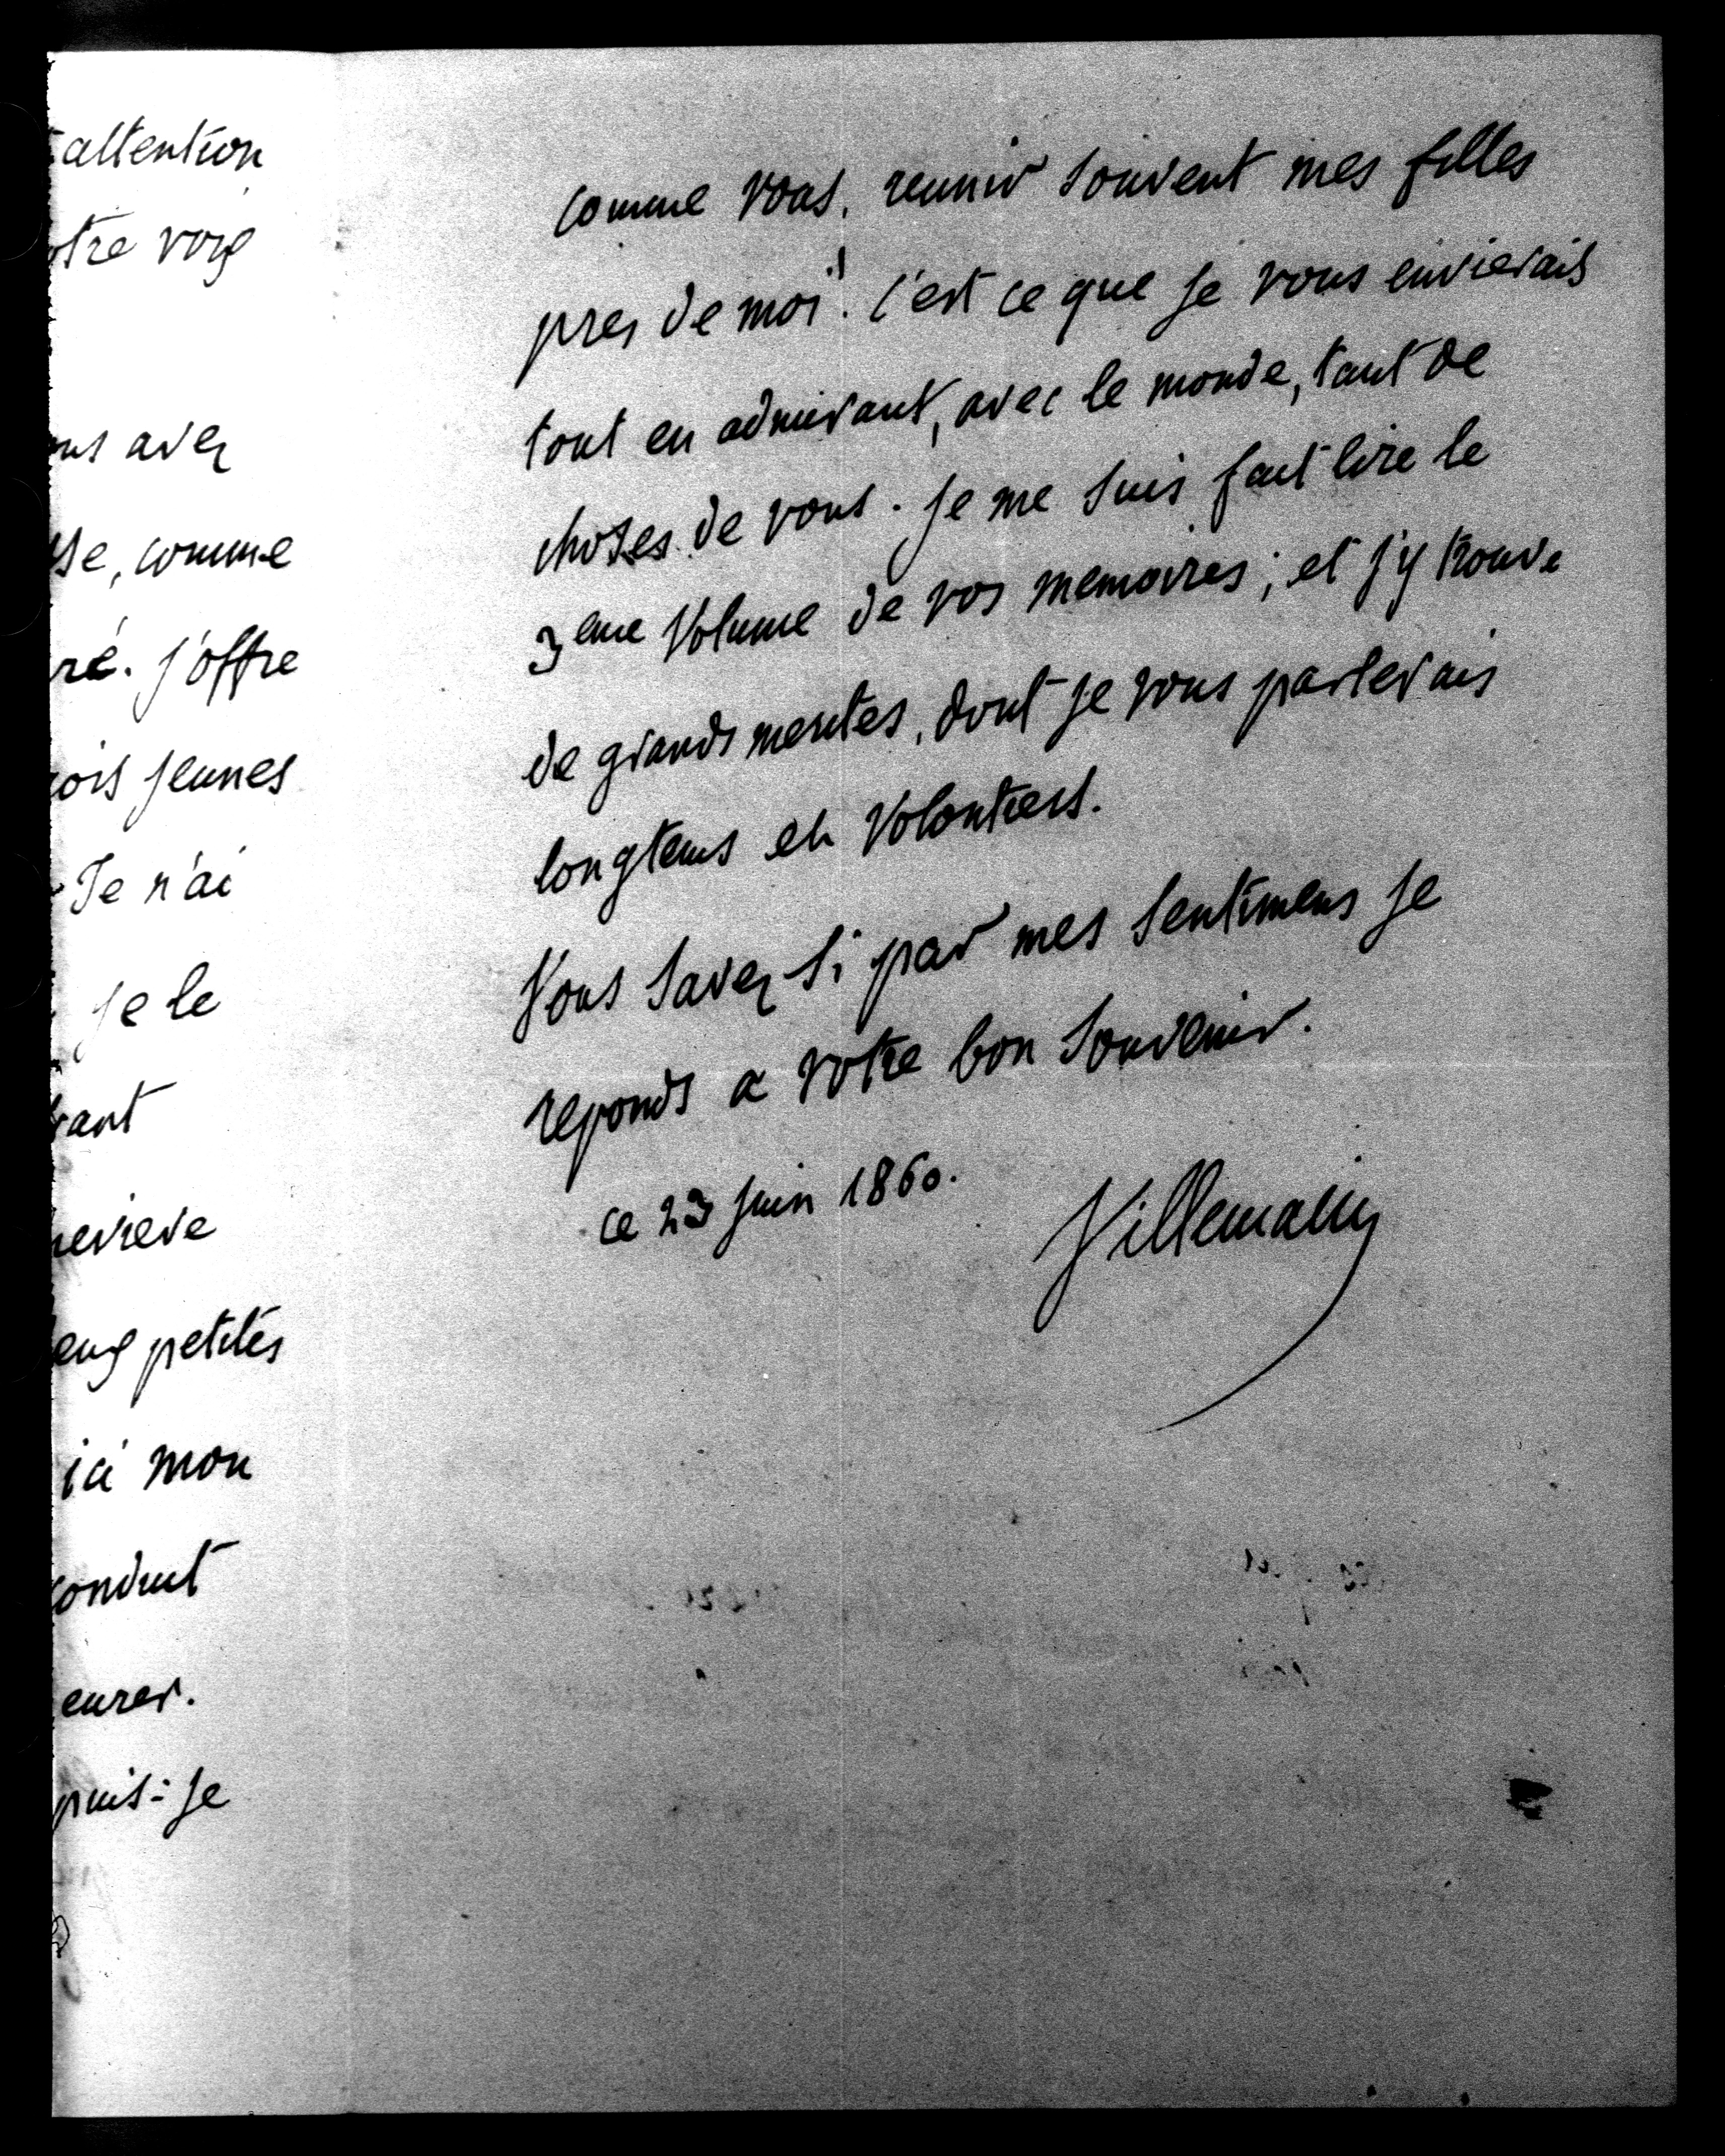 attention
otre voix
avez
se, comme
ré. j'offre
ois jeunes
Je n'ai
je le
rant
nevieve
eux petites
ici mon
conduit
eurer.
puis-je
comme vous, reunir souvent mes filles
pres de moi! C'est ce que je vous envierais
tout en admirant, avec le monde, tant de
choses de vous. je me suis fait lire le
3eme Volume de vos memoires; et j'y trouve
de grands merites, dont je vous parlerais
longtems et volontiers.
Vous savez si par mes sentimens je
reponds a votre bon souvenir.
ce 23 juin 1860.
Villemain